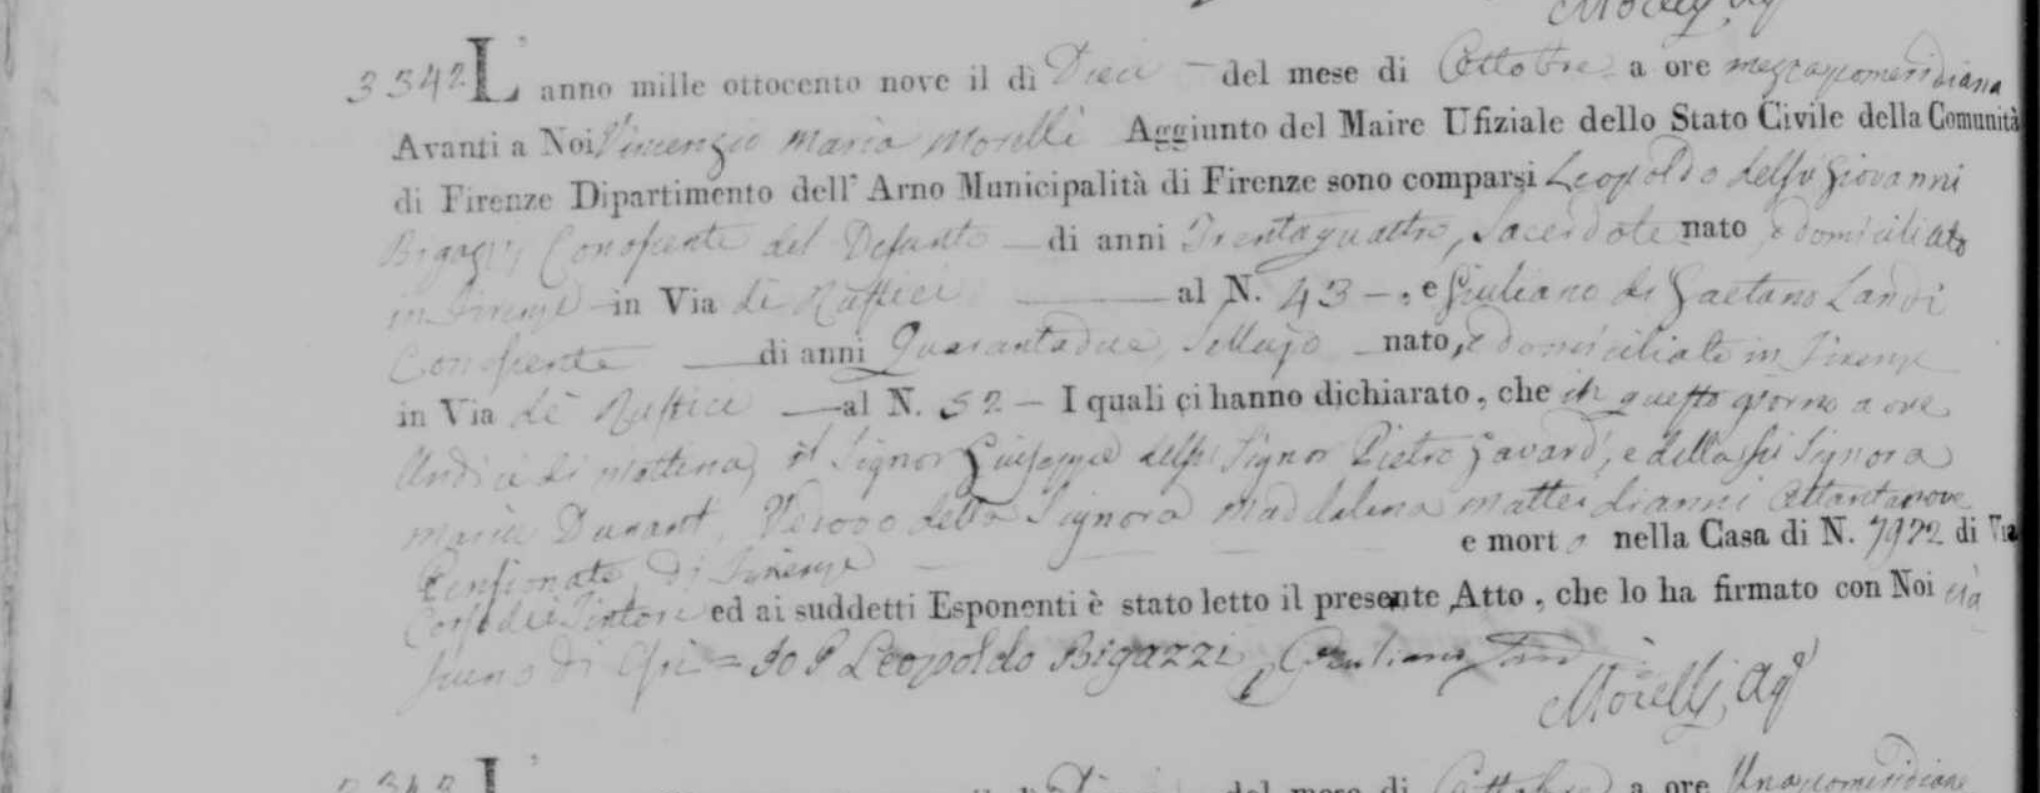 Morelli, Agº
3342 L'anno mille ottocento nove il dì Dieci - del mese di Ottobre a ore mezza pomeridiana
Avanti a Noi Vincenzio Maria Morelli Aggiunto del Maire Ufiziale dello Stato Civile della Comunità
di Firenze Dipartimento dell' Arno Municipalità di Firenze sono comparsi Leopoldo del fù Giovanni
Bigazzi, Conoscente del Defunto — di anni Trentaquattro, Sacerdote nato e domiciliato
in Firenze in Via de Rustici — al N. 43 -, e Giuliano di Gaetano Landi
Conoscente — di anni Quarantadue, Sellajo nato, e domiciliato in Firenze
in Via de Rustici — al N. 52 - I quali ci hanno dichiarato, che in questo giorno a ore
Undici di mattina, il Signor Giuseppe del fu Signor Pietro Gavard, e della fu Signora
Maria Dunant, Vedovo della Signora Maddalena Mattei d'anni Ottantanove
Pensionato, di Firenze — e morto nella Casa di N. 7922 di Via
Corso dei Tintori ed ai suddetti Esponenti è stato letto il presente Atto, che lo ha firmato con Noi
di = Io P Leopoldo Bigazzi, Giuliano Landi
Morelli, Agº
L'
del mese di Ottobre a ore Una pomeridiana